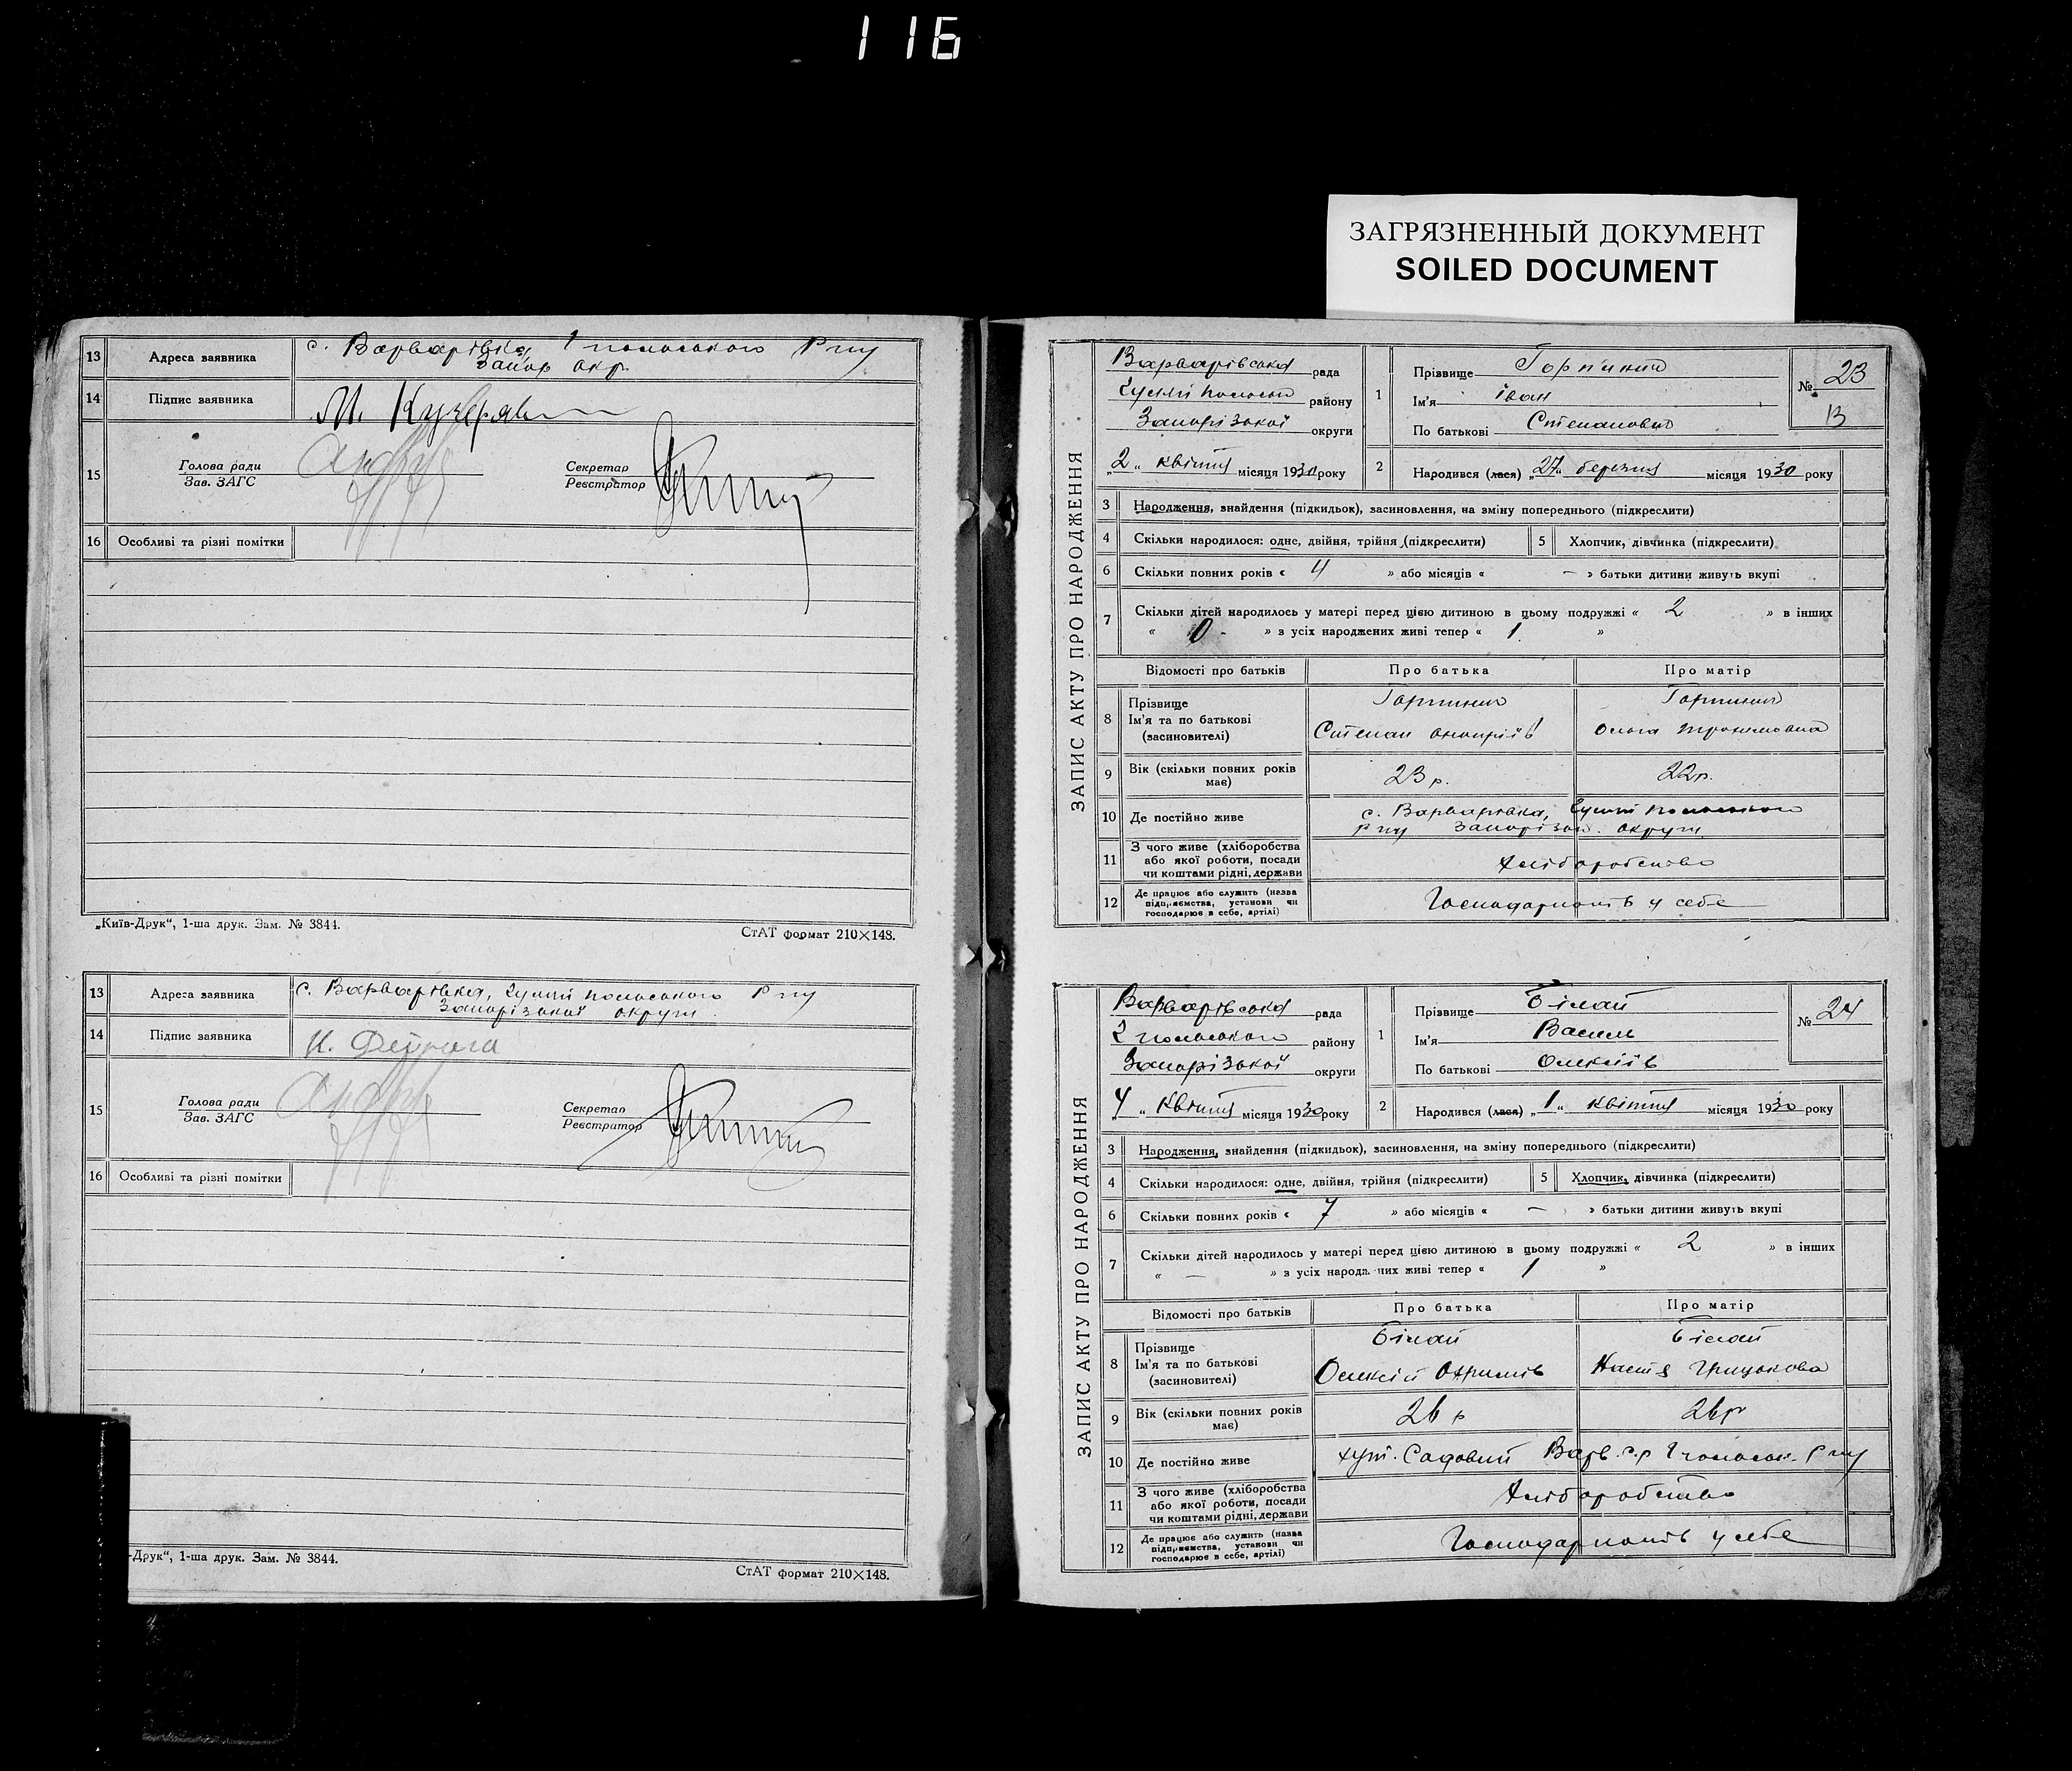 116
ЗАГРЯЗНЕННЫЙ ДОКУМЕНТ
SOILED DOCUMENT
13 Адреса заявника с. Варварівка,
Запор окр.
14 Підпис заявника М.
15 Голова ради Секретар
Зав. ЗАГС Реєстратор
16 Особливі та різні помітки
„Київ-Друк“, 1-ша друк. Зам. № 3844.
СтАТ формат 210×148.
13 Адреса заявника с. Варварівка,
Запорізької округи
14 Підпис заявника
15 Голова ради Секретар
Зав. ЗАГС Реєстратор
16 Особливі та різні помітки
-Друк“, 1-ша друк. Зам. № 3844.
СтАТ формат 210×148.
ЗАПИС АКТУ ПРО НАРОДЖЕННЯ
Варварівська рада
району
Запорізької округи
„2„ квітня місяця 1930 року
1 Прізвище
Ім'я Іван
По батькові Степанович
№ 23
В
2 Народився (лася) „27„ березня місяця 1930 року
3 Народження, знайдення (підкидьок), засиновлення, на зміну попереднього (підкреслити)
4 Скільки народилося: одне, двійня, трійня (підкреслити) 5 Хлопчик, дівчинка (підкреслити)
6 Скільки повних років « 4 » або місяців « — » батьки дитини живуть вкупі
7 Скільки дітей народилось у матері перед цією дитиною в цьому подружжі « 2 » в інших
« 0 - » з усіх народжених живі тепер « 1 »
Відомості про батьків Про батька Про матір
8 Прізвище
Ім'я та по батькові Степан Ольга
(засиновителі)
9 Вік (скільки повних років має) 23 р. 22 р.
10 Де постійно живе с. Варварівка,
округи
11 З чого живе (хліборобства
або якої роботи, посади Хліборобство
чи коштами рідні, держави
12 Де працює або служить (назва
підприємства, установи чи у себе
господарює в себе, артілі)
ЗАПИС АКТУ ПРО НАРОДЖЕННЯ
Варварівська рада
району
Запорізької округи
4 „ квітня місяця 1930 року
1 Прізвище Білай
Ім'я Василь
По батькові Олексіїв
№ 24
2 Народився (лася) „1„ квітня місяця 1930 року
3 Народження, знайдення (підкидьок), засиновлення, на зміну попереднього (підкреслити)
4 Скільки народилося: одне, двійня, трійня (підкреслити) 5 Хлопчик, дівчинка (підкреслити)
6 Скільки повних років « 7 » або місяців « — » батьки дитини живуть вкупі
7 Скільки дітей народилось у матері перед цією дитиною в цьому подружжі « 2 » в інших
« — » з усіх народжених живі тепер « 1 »
Відомості про батьків Про батька Про матір
8 Прізвище Білай Білай
Ім'я та по батькові Олексій Настя
(засиновителі)
9 Вік (скільки повних років має) 26 р 26 р
10 Де постійно живе хут. Садовий Варв. с.р
11 З чого живе (хліборобства
або якої роботи, посади Хліборобство
чи коштами рідні, держави
12 Де працює або служить (назва
підприємства, установи чи у себе
господарює в себе, артілі)